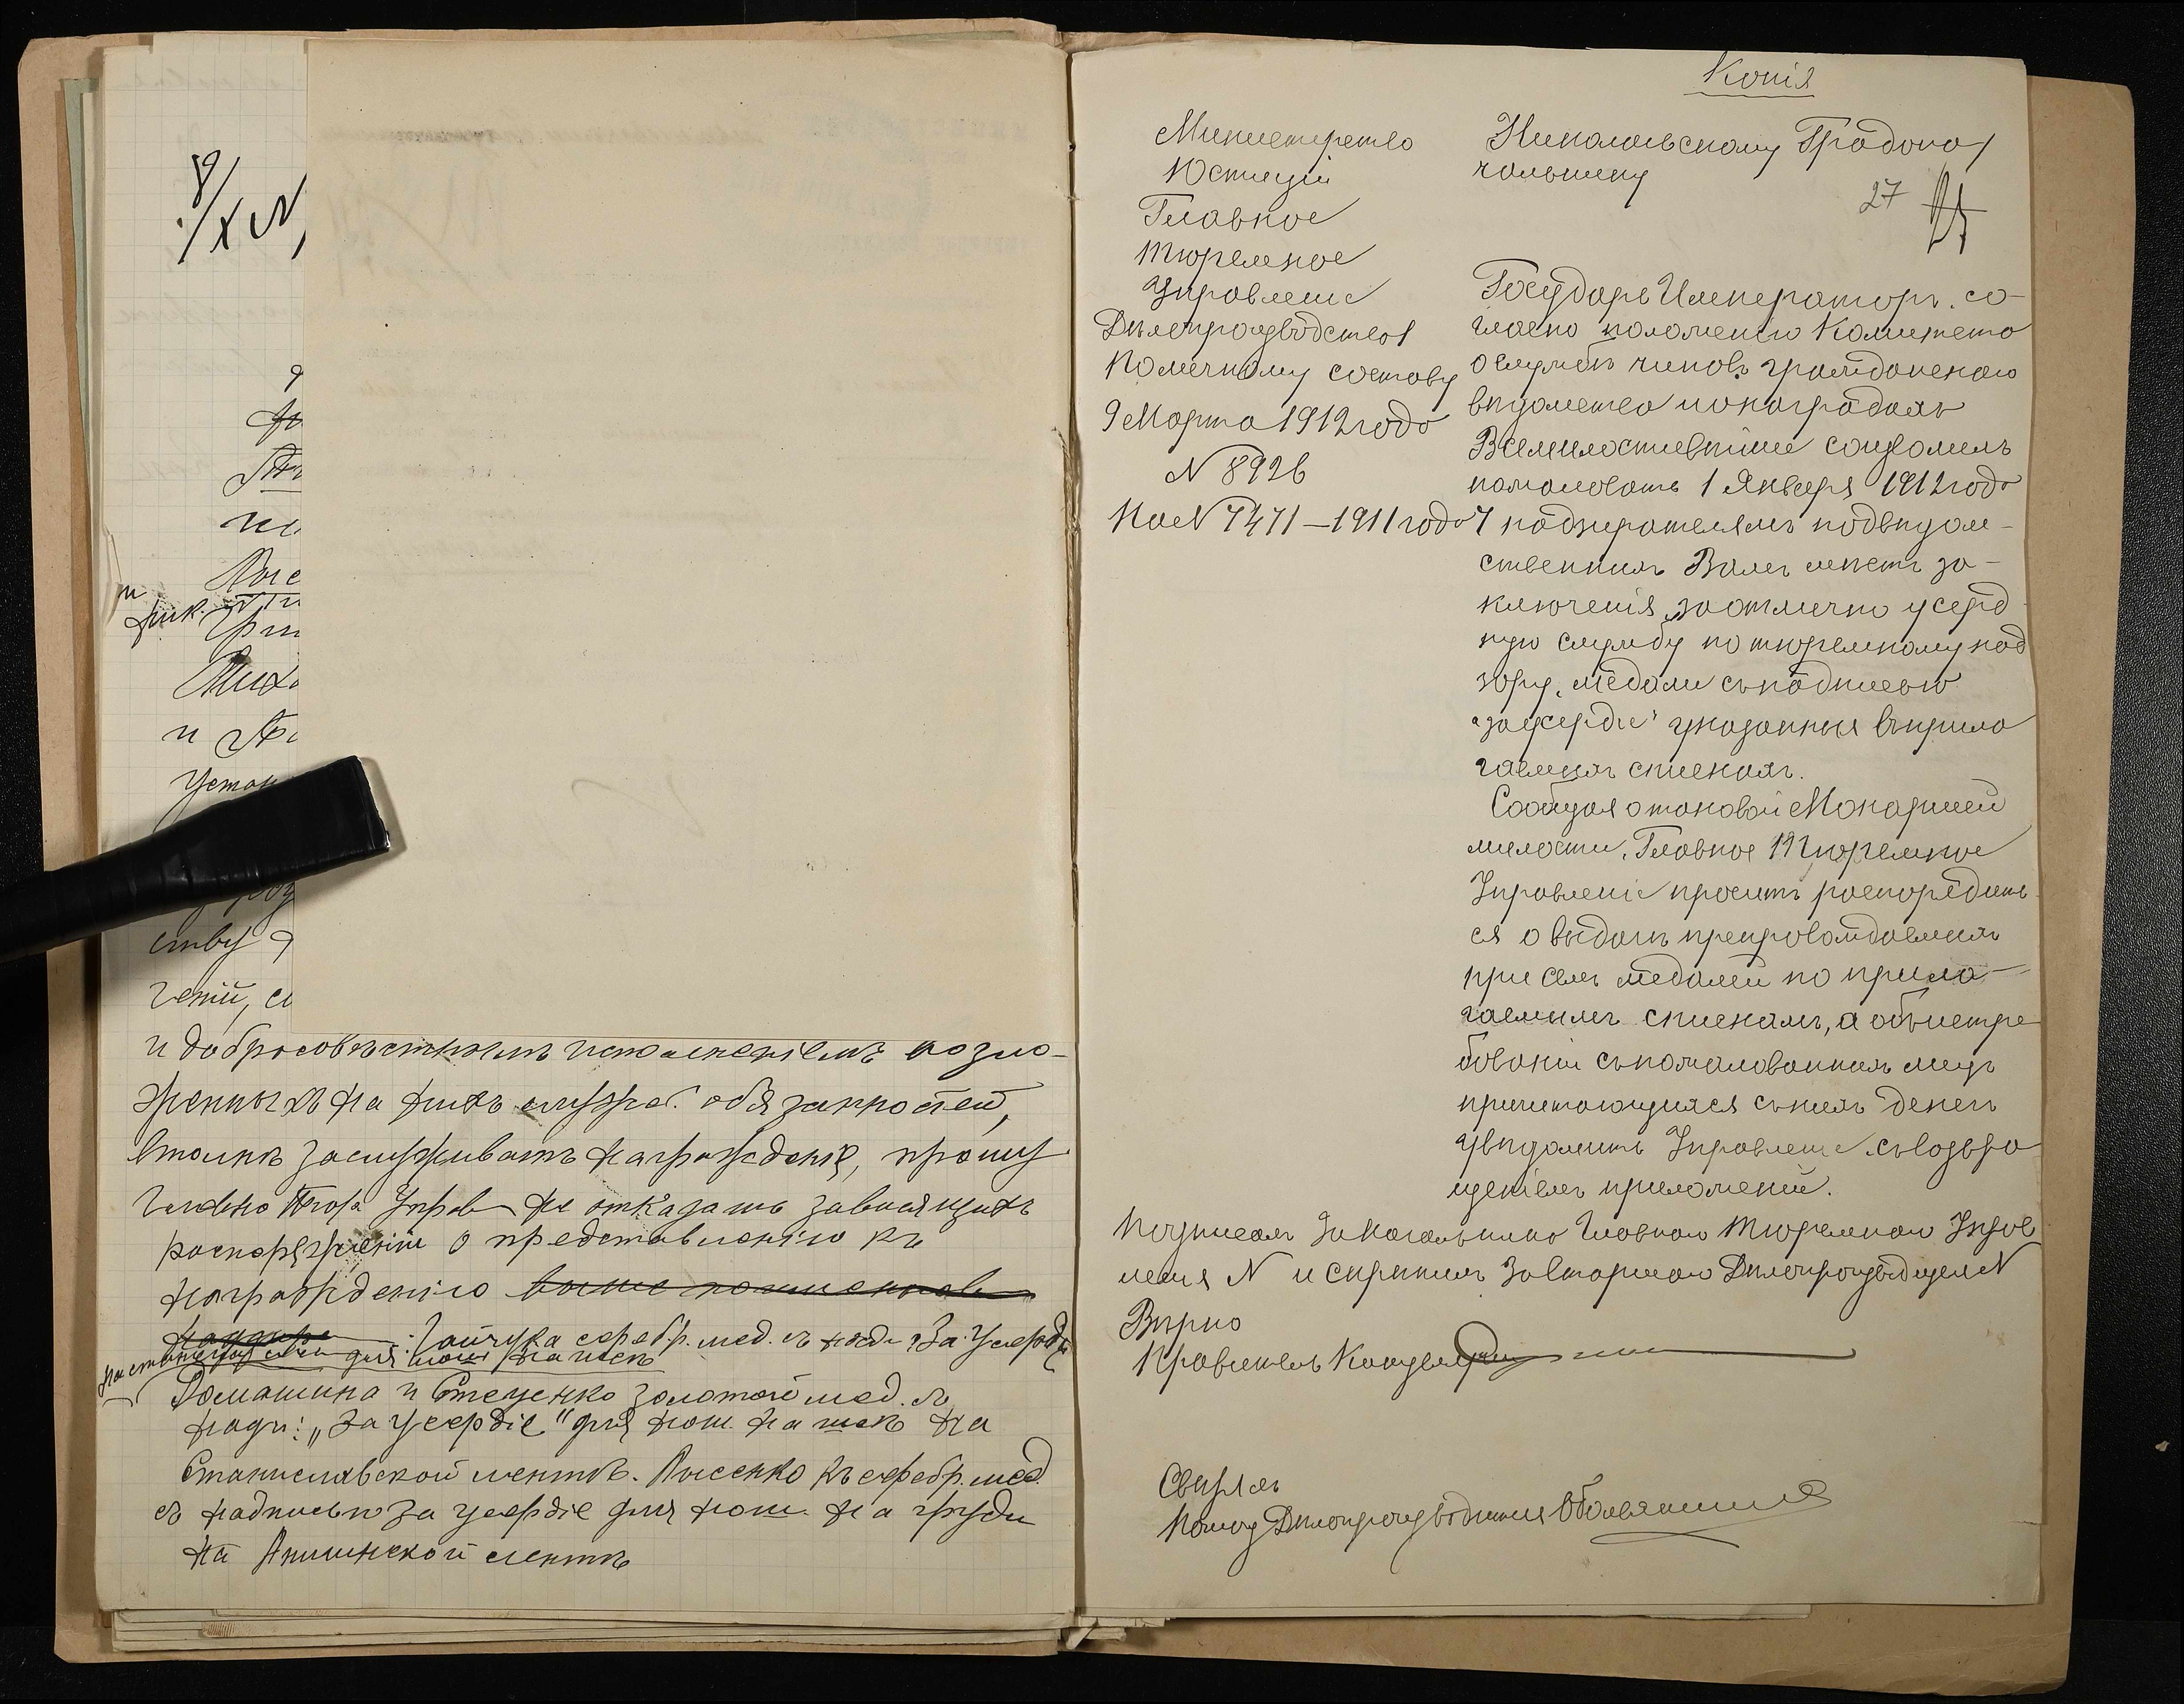 8/X
Лысе
Миха
и
Устан
ству
чений, с
и добросовѣстнымъ исполненіемъ возло-
женныхъ на нихъ служеб. обязанностей,
вполнѣ заслуживаютъ награжденія, прошу
Главно Тюр Управ не отказать зависящихъ
распоряженіи о представленіи къ
награжденію
Гайчука серебр. мед. съ надп „За Усердіе
для нош на шеѣ
Ромашина и Стеценко золотой мед. съ
надп: „За усердіе" для нош. на шеѣ на
Станиславской лентѣ. Лысенко къ серебр. мед.
съ надписью за усердіе для нош. на груди
на Аннинской лентѣ
Копія
Министерство
Юстиціи
Главное
Тюремное
Управленіе
Дѣлопроизводство
По личному составу
9 Марта 1912 года
N 8926
На N 7471 – 1911 года
Николаевскому Градона
чальнику
27
Государь Императоръ, со-
гласно положенію Комитета
о службѣ чиновъ гражданскаго
вѣдомства и о наградахъ
Всемилостивѣйше соизволилъ
пожаловать 1 Января 1912 года
4 надзирателямъ подвѣдом-
ственныхъ Вамъ мѣстъ за-
ключенія, за отлично усерд
ную службу по тюремному над
зору, медали съ надписью
„за усердіе" указанныя въ прила
гаемыхъ спискахъ.
Сообщая о таковой Монаршей
милости, Главное Тюремное
Управленіе проситъ распорядить
ся о выдачѣ препровождаемыхъ
при семъ медалей по прила-
гаемымъ спискамъ, а объ истре
бованіи съ пожалованныхъ лицъ
причитающихся съ нихъ денегъ
увѣдомить Управленіе съ возвра
щеніемъ приложеній.
Подписалъ За Начальника Главнаго Тюремнаго Управ
ленія N и скрѣпилъ Дѣлопроизводителя N
Вѣрно
Правитель Канцеляріи
Свѣрялъ
Помощ Дѣлопроизводителя